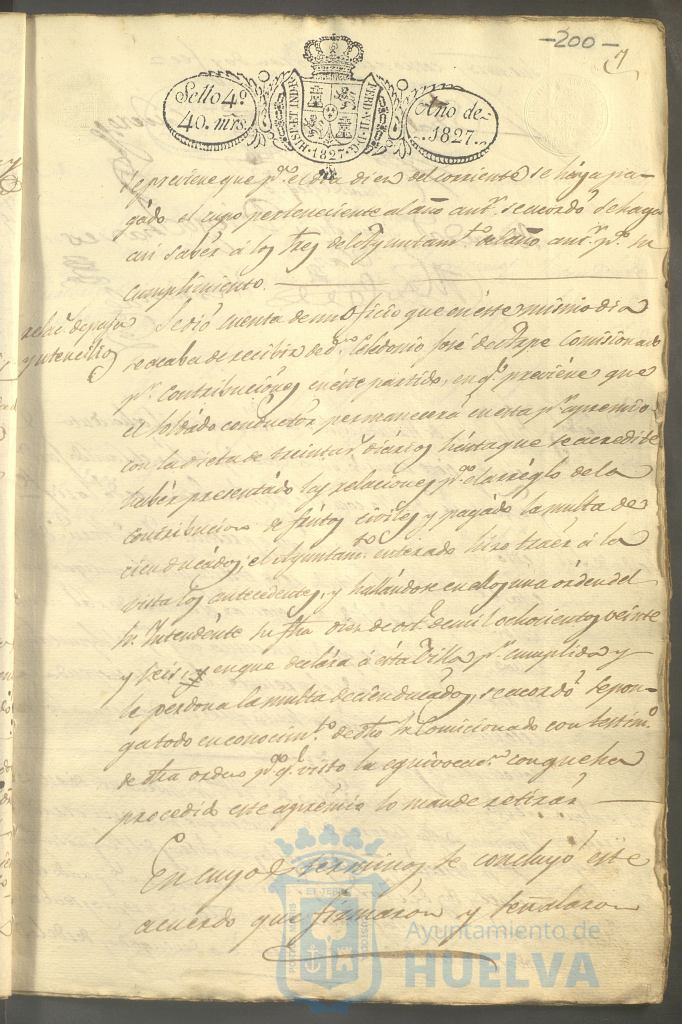 -200-
Sello 4º
40. mrs.
HISP. ET IND. R.
FERD. VII. D. G.
·1827·
Año de
1827.
se previene que pª. el dia diez del corriente se haya pa-
gádo el cupo perteneciente al año antr. se acordó se haga
asi saber á los del Ayuntamto. del año antr. pª. su
cumplimiento.
relac. de paja
y utencilios
Se dió cuenta de un Oficio que en éste mismo dia
se acaba de recibir de dn. Celedonio José de Comisionado
pr. contribuciones en éste partido, en qe. previéne que
el soldádo conductor permanecerá en esta pr. apremio
con la dieta de treinta rs. diários hásta que se acredite
habér presentádo las relaciones pª. el arréglo de la
contribucion de frútos civiles y pagádo la multa de
cien ducádos; el Ayuntamto. enterado hizo traér á la
vista los antecedentes, y hallándose en ellos una órden del
Sr. Intendénte su fha diez de octe. de mil ochocientos veinte
y seis, en que declára á ésta Villa pr. cumplida y
le perdona la multa de cien ducádos, se acordó se pon-
ga todo en conocimto. de dho Sr. Comicionado con testimº.
de dha orden pª. qe. visto la equivocacn. con que ha
procedido este aprémio lo mande retirár
En cuyos terminos se concluyó este
acuerdo que firmáron y señalaron
Ayuntamiento de
HUELVA